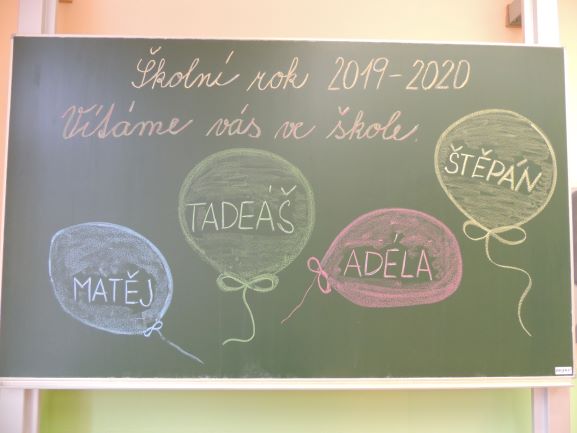 Školní rok 2019-2020
Vítáme vás ve škole.
ŠTĚPÁN
TADEÁŠ
ADÉLA
MATĚJ